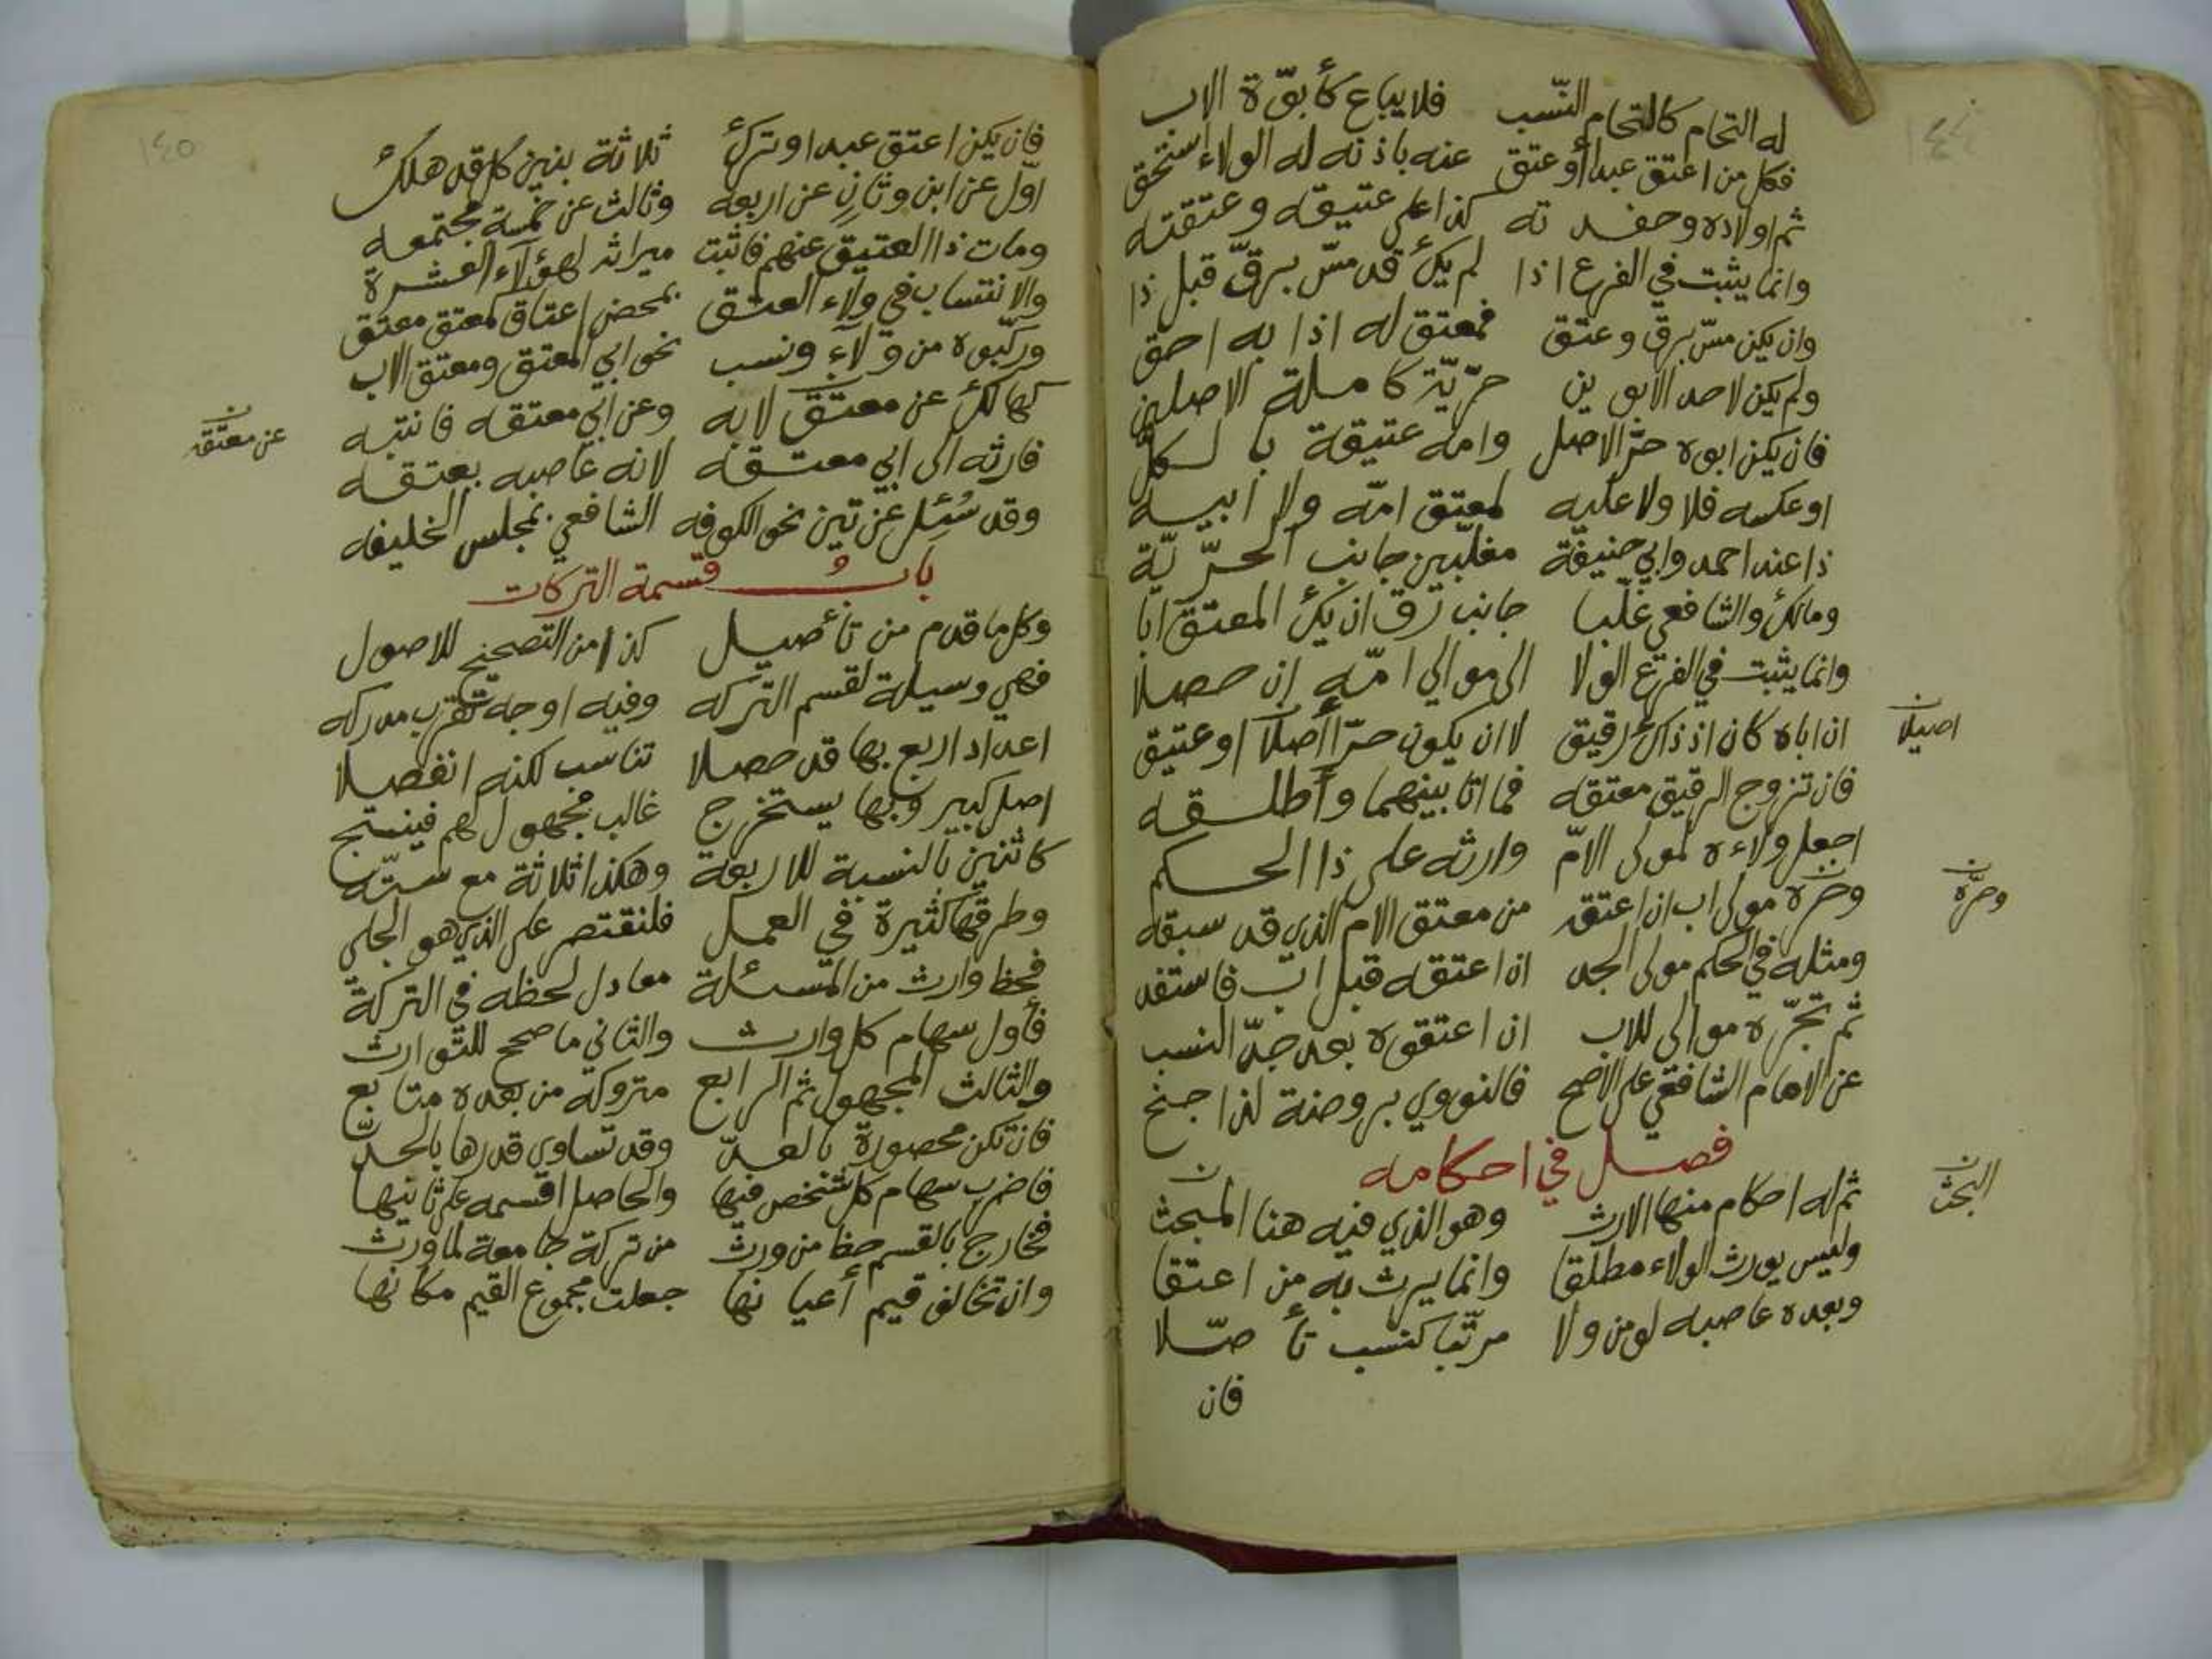 ١٤٤
له التحام كالتحام النّسب فلا يباع كأبوّة الاب
فكل من اعتق عبدا أو عتق عنه باذنه له الولاء استحق
ثم اولاده وحفد ته كذا على عتيقه وعتقته
وانما يثبت في الفرع اذا لم يكُ قد مسّ برقّ قبل ذا
وان يكن مسّ برق وعتق فمعتق له اذا به احق
ولم يكن لاحد الابوين حرّيّة كاملة الاصلين
فان يكن ابوه حرّ الاصل وامه عتيقة بالكلّ
او عكسه فلا ولا عليه لمعتق امّه ولا ابيه
ذا عند احمد وابي حنيفة مغلّبين جانب الحرّيّة
ومالك والشافعي غلّبا جانب رق ان يك المعتق ابا
وانما يثبت في الفرع الولا الى موالي امّه ان حصلا
ان اباه كان اذ ذاك رقيق لا ان يكون حرّا أصلا او عتيق
اصيلا ن
فان تزوج الرقيق معتقه فما اتا بينهما وأطلقه
اجعل ولاءه لمولى الامّ وارثه على ذا الحكم
وجرّه مولى اب ان اعتقه من معتق الام الذي قد سبقه
وجرّه ن
ومثله في الحكم مولى الجد ان اعتقه قبل اب فاستفد
ثم تجرّه موالي للاب ان اعتقوه بعد جدّ النسب
عن الامام الشافعي على الاصح فالنووي بروضة لذا جنح
فصل في احكامه
ثم له احكام منها الارث وهو الذي فيه هنا المبحث
البحث ن
وليس يورث الولاء مطلقا وانما يرث به من اعتقا
وبعده عاصبه لو من ولا مرتّبا كنسب تأصّلا
فان
١٤٥
فان يكن اعتق عبدا وترك ثلاثة بنين كل قد هلك
اوّل عن ابن وثانٍ عن اربعه وثالث عن خمسة مجتمعه
ومات ذا العتيق عنهم فاثبت ميراثه لهؤلاء العشرة
والانتساب في ولاء العتق بمحض اعتاق كمعتق معتق
وركّبوه من ولاء ونسب نحو ابي المعتق ومعتق الاب
كهالك عن معتق لابه وعن ابي معتقه فانتبه
عن معتقه ن
فارثه الى ابي معتقه لانه عاصبه بعتقه
وقد سُئل عن تين نحو الكوفه الشافعي بمجلس الخليفه
بابُ قسمة التركات
وكل ما قدم من تأصيل كذا من التصحيح للاصول
فهي وسيلة لقسم التركه وفيه اوجه تقرب مدركه
اعداد اربع بها قد حصلا تناسب لكنه انفصلا
اصل كبير وبها يستخرج غالب مجهول لهم فينتج
كاثنين بالنسبة للاربعة وهكذا ثلاثة مع ستّه
وطرقها كثيرة في العمل فلنقتصر على الذي هو الجلي
فحظ وارث من المسئلة معادل لحظه في التركة
فأول سهام كل وارث والثاني ما صحح للتوارث
والثالث المجهول ثم الرابع متروكه من بعده متابع
فان تكن محصورة بالعدّ وقد تساوى قدرها بالحدّ
فاضرب سهام كل شخص فيها والحاصل اقسمه على ثانيها
فخارج بالقسم حظ من ورث من تركة جامعة لما ورث
وان تخالف قيم أعيانها جعلت مجموع القيم مكانها